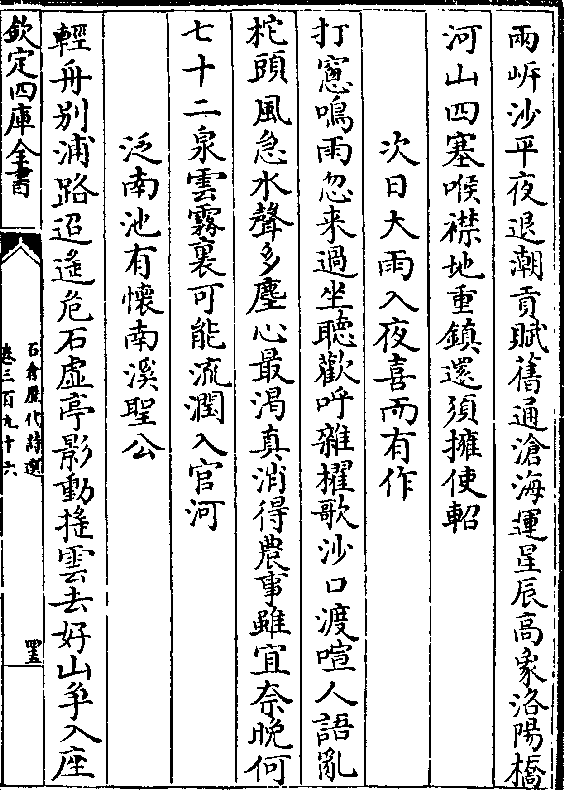 兩岍沙平夜退潮貢賦舊通滄海運星辰高象洛陽橋
河山四塞喉襟地重鎮還須擁使軺
次日大雨入夜喜而有作
打窻鳴雨忽来過坐聽歡呼雜櫂歌沙口渡喧人語亂
柁頭風急水聲多塵心最渴真消得農事雖宜奈晚何
七十二泉雲霧裏可能流潤入官河
泛南池有懷南溪聖公
輕舟别浦路迢遙危石虛亭影動搖雲去好山爭入座
欽定四庫全書
石倉歷代詩選
卷三百九十六